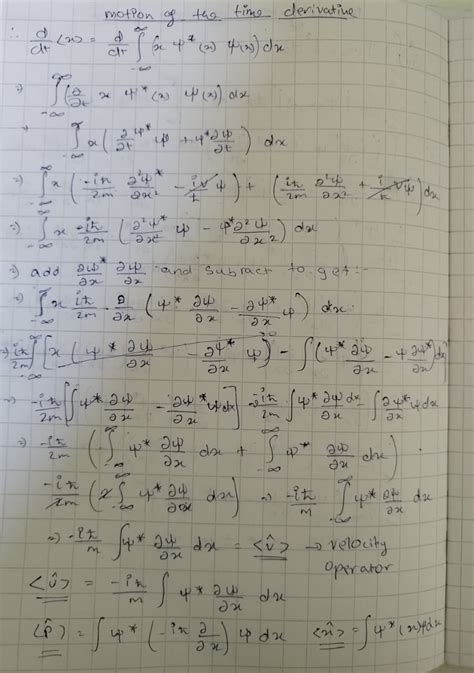 motion of the time derivative
∴ d/dt <x> = d/dt ∫_{-∞}^{∞} (x ψ*(x) ψ(x)) dx
⇒ ∫_{-∞}^{∞} (∂/∂t x ψ*(x) ψ(x)) dx
→ ∫_{-∞}^{∞} x (∂ψ*/∂t ψ + ψ* ∂ψ/∂t) dx
⇒ ∫_{-∞}^{∞} x (-iħ/2m ∂²ψ*/∂x² - i/ħ Vψ) + (iħ/2m ∂²ψ/∂x² + i/ħ Vψ) dx
⇒ ∫_{-∞}^{∞} x -iħ/2m (∂²ψ*/∂x² ψ - ψ* ∂²ψ/∂x²) dx
⇒ add ∂ψ*/∂x ∂ψ/∂x and subtract to get:-
⇒ ∫_{-∞}^{∞} x iħ/2m ∂/∂x (ψ* ∂ψ/∂x - ∂ψ*/∂x ψ) dx.
→ iħ/2m ∫_{-∞}^{∞} [x (ψ* ∂ψ/∂x - ∂ψ*/∂x ψ) - ∫ (ψ* ∂ψ/∂x - ψ ∂ψ*/∂x) dx]
→ -iħ/2m [∫ ψ* ∂ψ/∂x - ∂ψ*/∂x ψ dx] → -iħ/2m ∫ ψ* ∂ψ/∂x dx - ∫ ∂ψ*/∂x ψ dx
⇒ -iħ/2m (∫_{-∞}^{∞} ψ* ∂ψ/∂x dx + ∫_{-∞}^{∞} ψ* ∂ψ/∂x dx).
-iħ/2m (2 ∫_{-∞}^{∞} ψ* ∂ψ/∂x dx) → -iħ/m ∫_{-∞}^{∞} ψ* ∂ψ/∂x dx
⇒ -iħ/m ∫ ψ* ∂ψ/∂x dx = <v̂> → velocity
operator
<v̂> = -iħ/m ∫ ψ* ∂ψ/∂x dx
<p̂> = ∫ ψ* (-iħ ∂/∂x) ψ dx <x̂> = ∫ ψ* (x) ψ dx